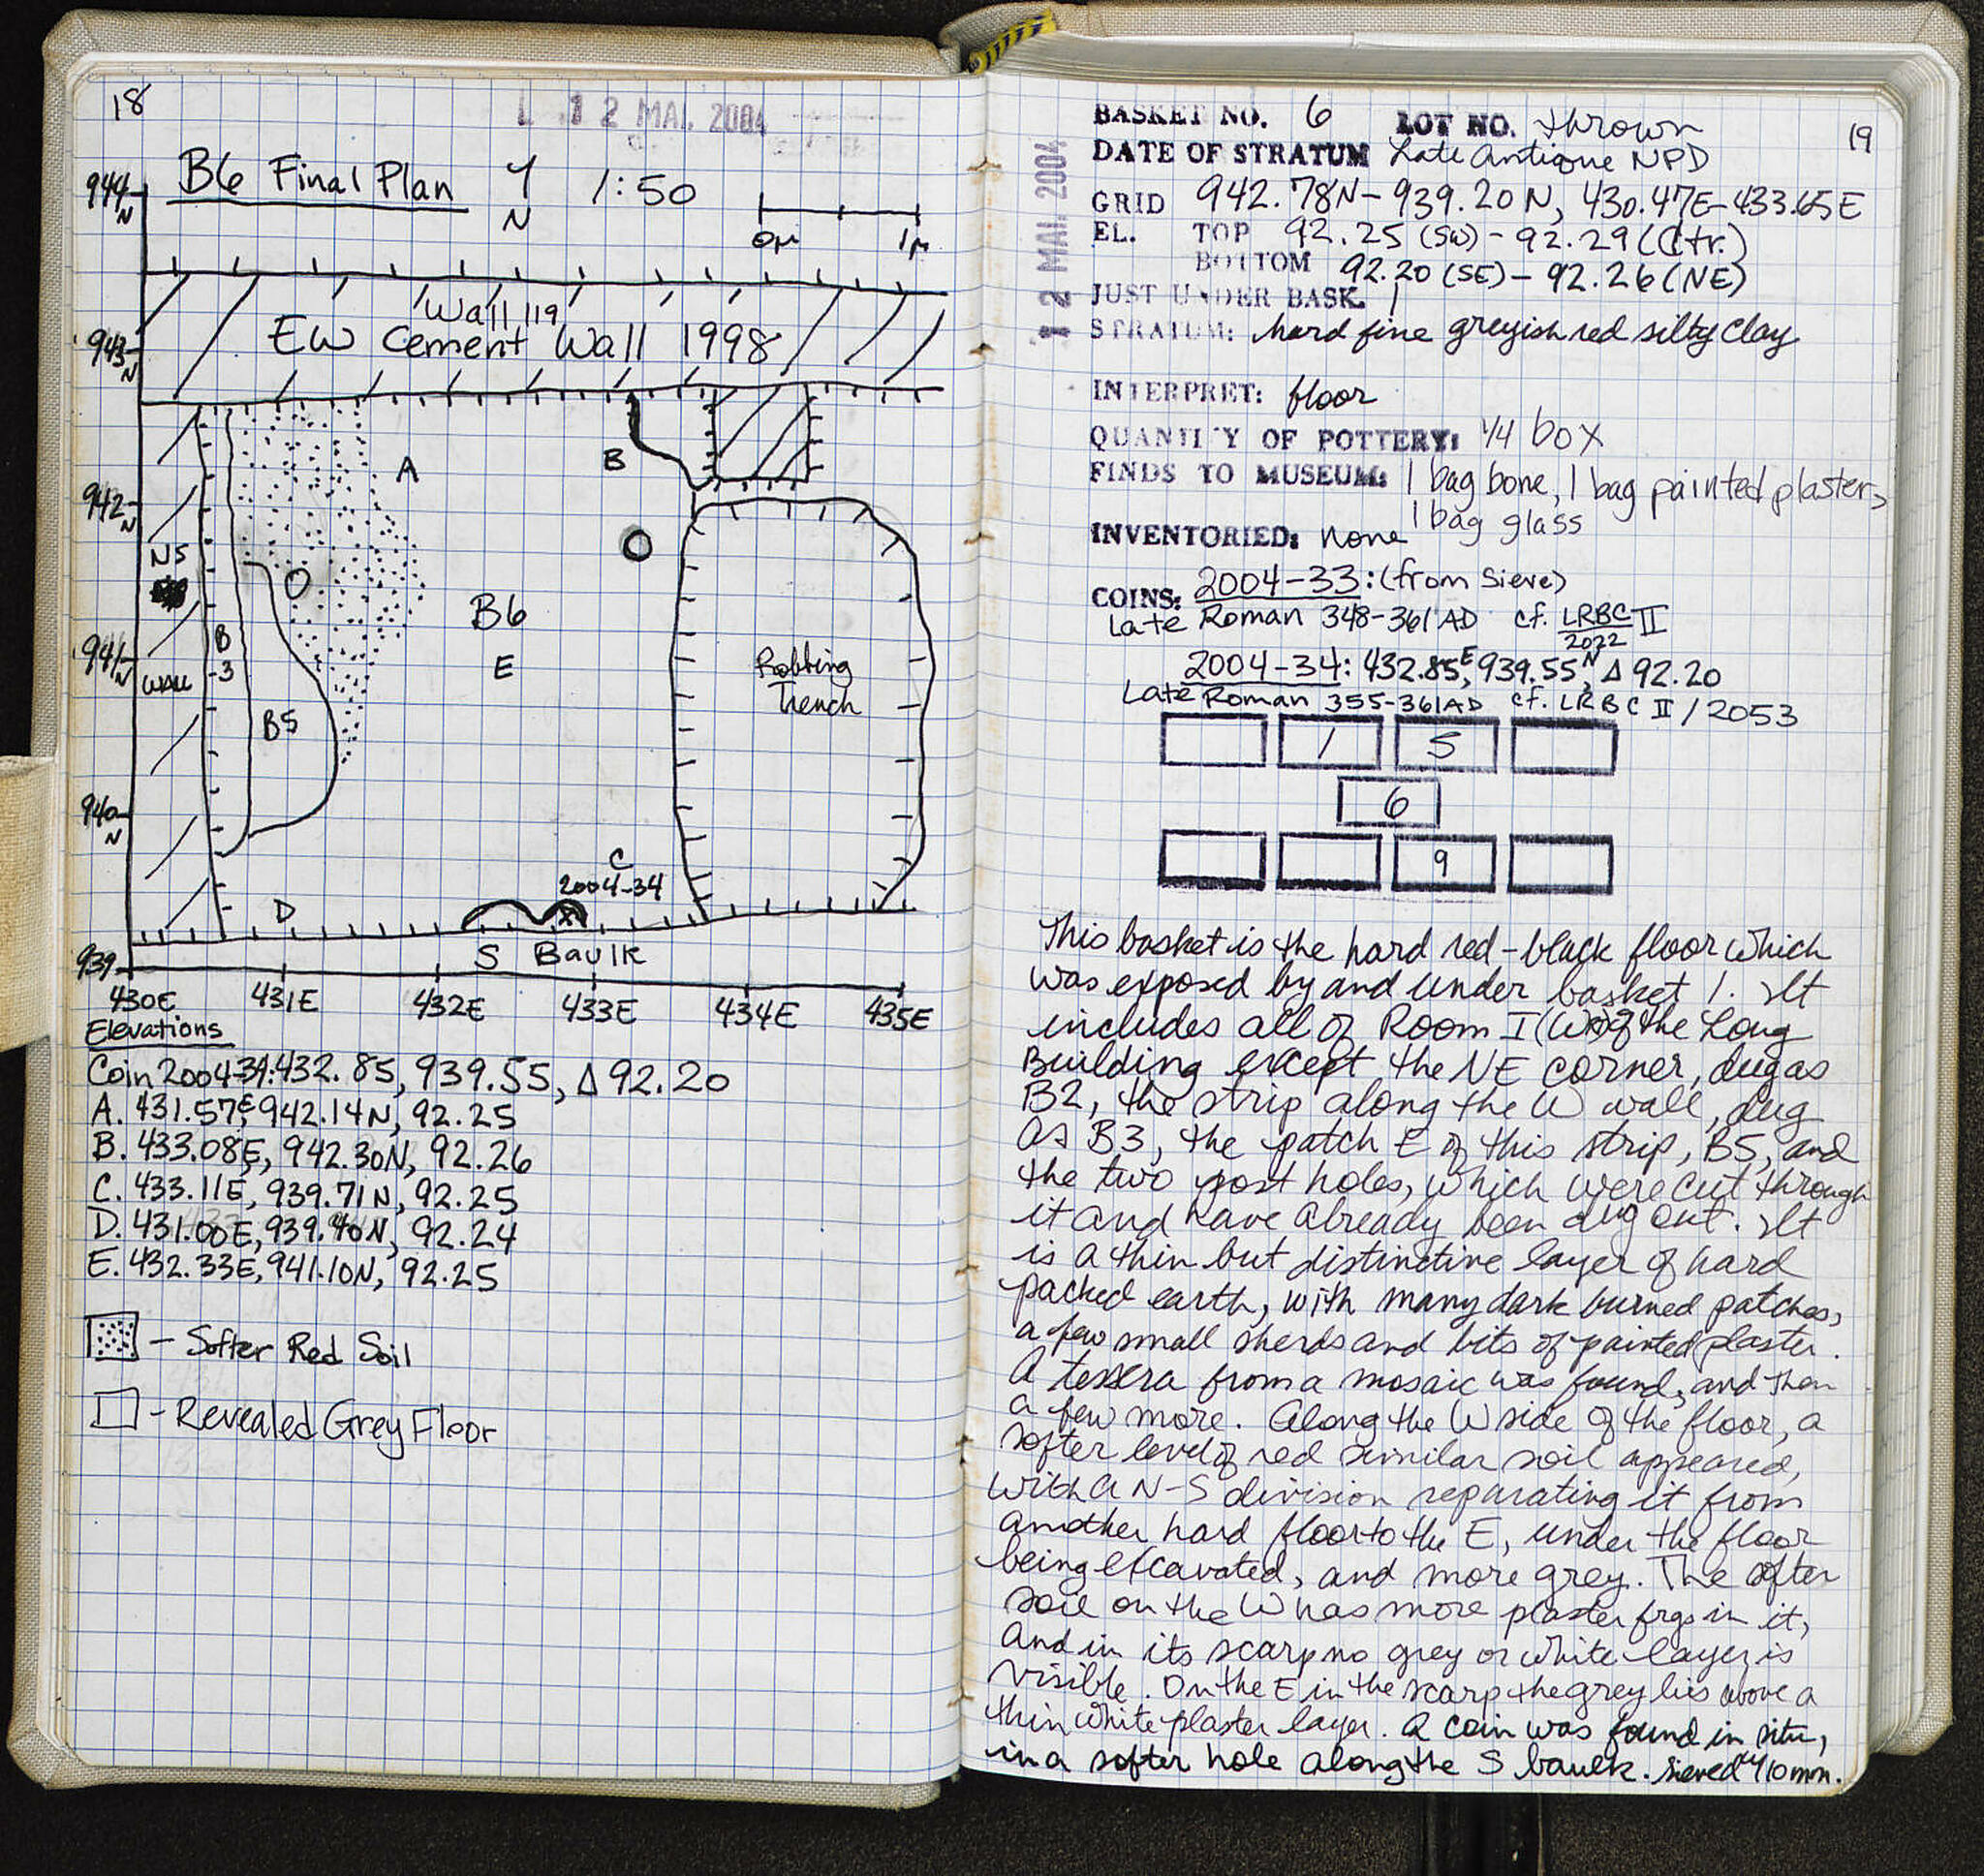 18
12 MAI. 2004
B6 Final Plan N 1:50
0m 1m
944 N
Wall 119
EW Cement Wall 1998
943 N
A
B
942 N
NS
WALL
B
3
B5
B6
E
Robbing
Trench
941 N
940 N
C
2004-34
x
D
S Baulk
939
430E 431E 432E 433E 434E 435E
Elevations
Coin 2004-34: 432.85, 939.55, Δ 92.20
A. 431.57E, 942.14N, 92.25
B. 433.08E, 942.30N, 92.26
C. 433.11E, 939.71N, 92.25
D. 431.00E, 939.40N, 92.24
E. 432.33E, 941.10N, 92.25
- Softer Red Soil
- Revealed Grey Floor
19
12 MAI. 2004
BASKET NO. 6 LOT NO. thrown
DATE OF STRATUM Late Antique NPD
GRID 942.78N-939.20N, 430.47E-433.65E
EL. TOP 92.25 (SW) - 92.29 (Ctr.)
BOTTOM 92.20 (SE) - 92.26 (NE)
JUST UNDER BASK. 1
STRATUM: hard fine greyish red silty clay
INTERPRET: floor
QUANTITY OF POTTERY: 1/4 box
FINDS TO MUSEUM: 1 bag bone, 1 bag painted plaster,
1 bag glass
INVENTORIED: none
COINS: 2004-33: (from sieve)
Late Roman 348-361AD cf. LRBC II
2022
2004-34: 432.85E, 939.55N, Δ 92.20
Late Roman 355-361AD cf. LRBC II / 2053
1 5
6
9
This basket is the hard red-black floor which
was exposed by and under basket 1. It
includes all of Room I of the Long
Building except the NE corner, dug as
B2, the strip along the W wall, dug
as B3, the patch E of this strip, B5, and
the two post holes, which were cut through
it and have already been dug out. It
is a thin but distinctive layer of hard
packed earth, with many dark burned patches,
a few small sherds and bits of painted plaster.
A tessera from a mosaic was found, and then
a few more. Along the W side of the floor, a
softer level of red similar soil appeared,
with a N-S division separating it from
another hard floor to the E, under the floor
being excavated, and more grey. The softer
soil on the W has more plaster frgs in it,
and in its scarp no grey or white layer is
visible. On the E in the scarp the grey lies above a
thin white plaster layer. A coin was found in situ,
in a softer hole along the S baulk. sieved w/ 10mm.